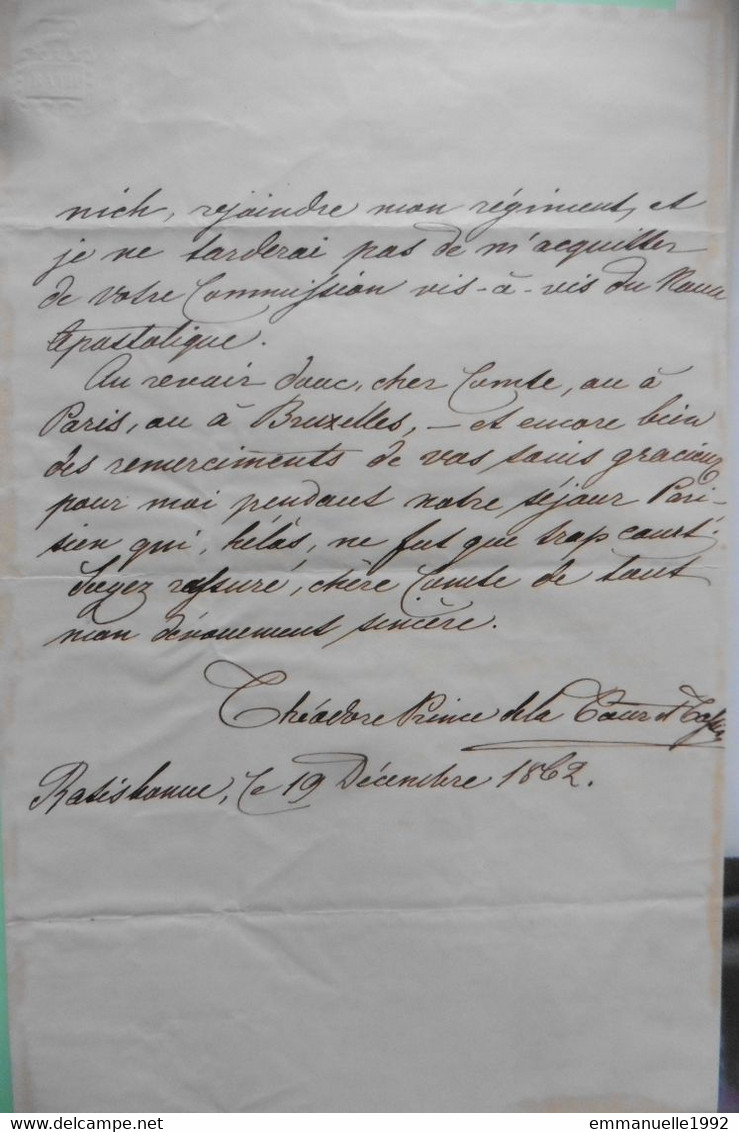 nich, rejoindre mon régiment, et
je ne tarderai pas de m'acquitter
de votre Commission vis-à-vis du Nonce
Apostolique.
Au revoir donc, cher Comte, ou à
Paris, ou à Bruxelles, – et encore bien
des remerciments de vos soins gracieux
pour moi pendant notre séjour Pari-
sien qui, hélàs, ne fut que trop court.
Soyez rassuré, chère Comte de tout
mon dévouement sincère.
Théodore Prince de la Tour et Tassis
Ratisbonne, le 19 Décembre 1862.
DELCAMPE.net
emmanuelle1992